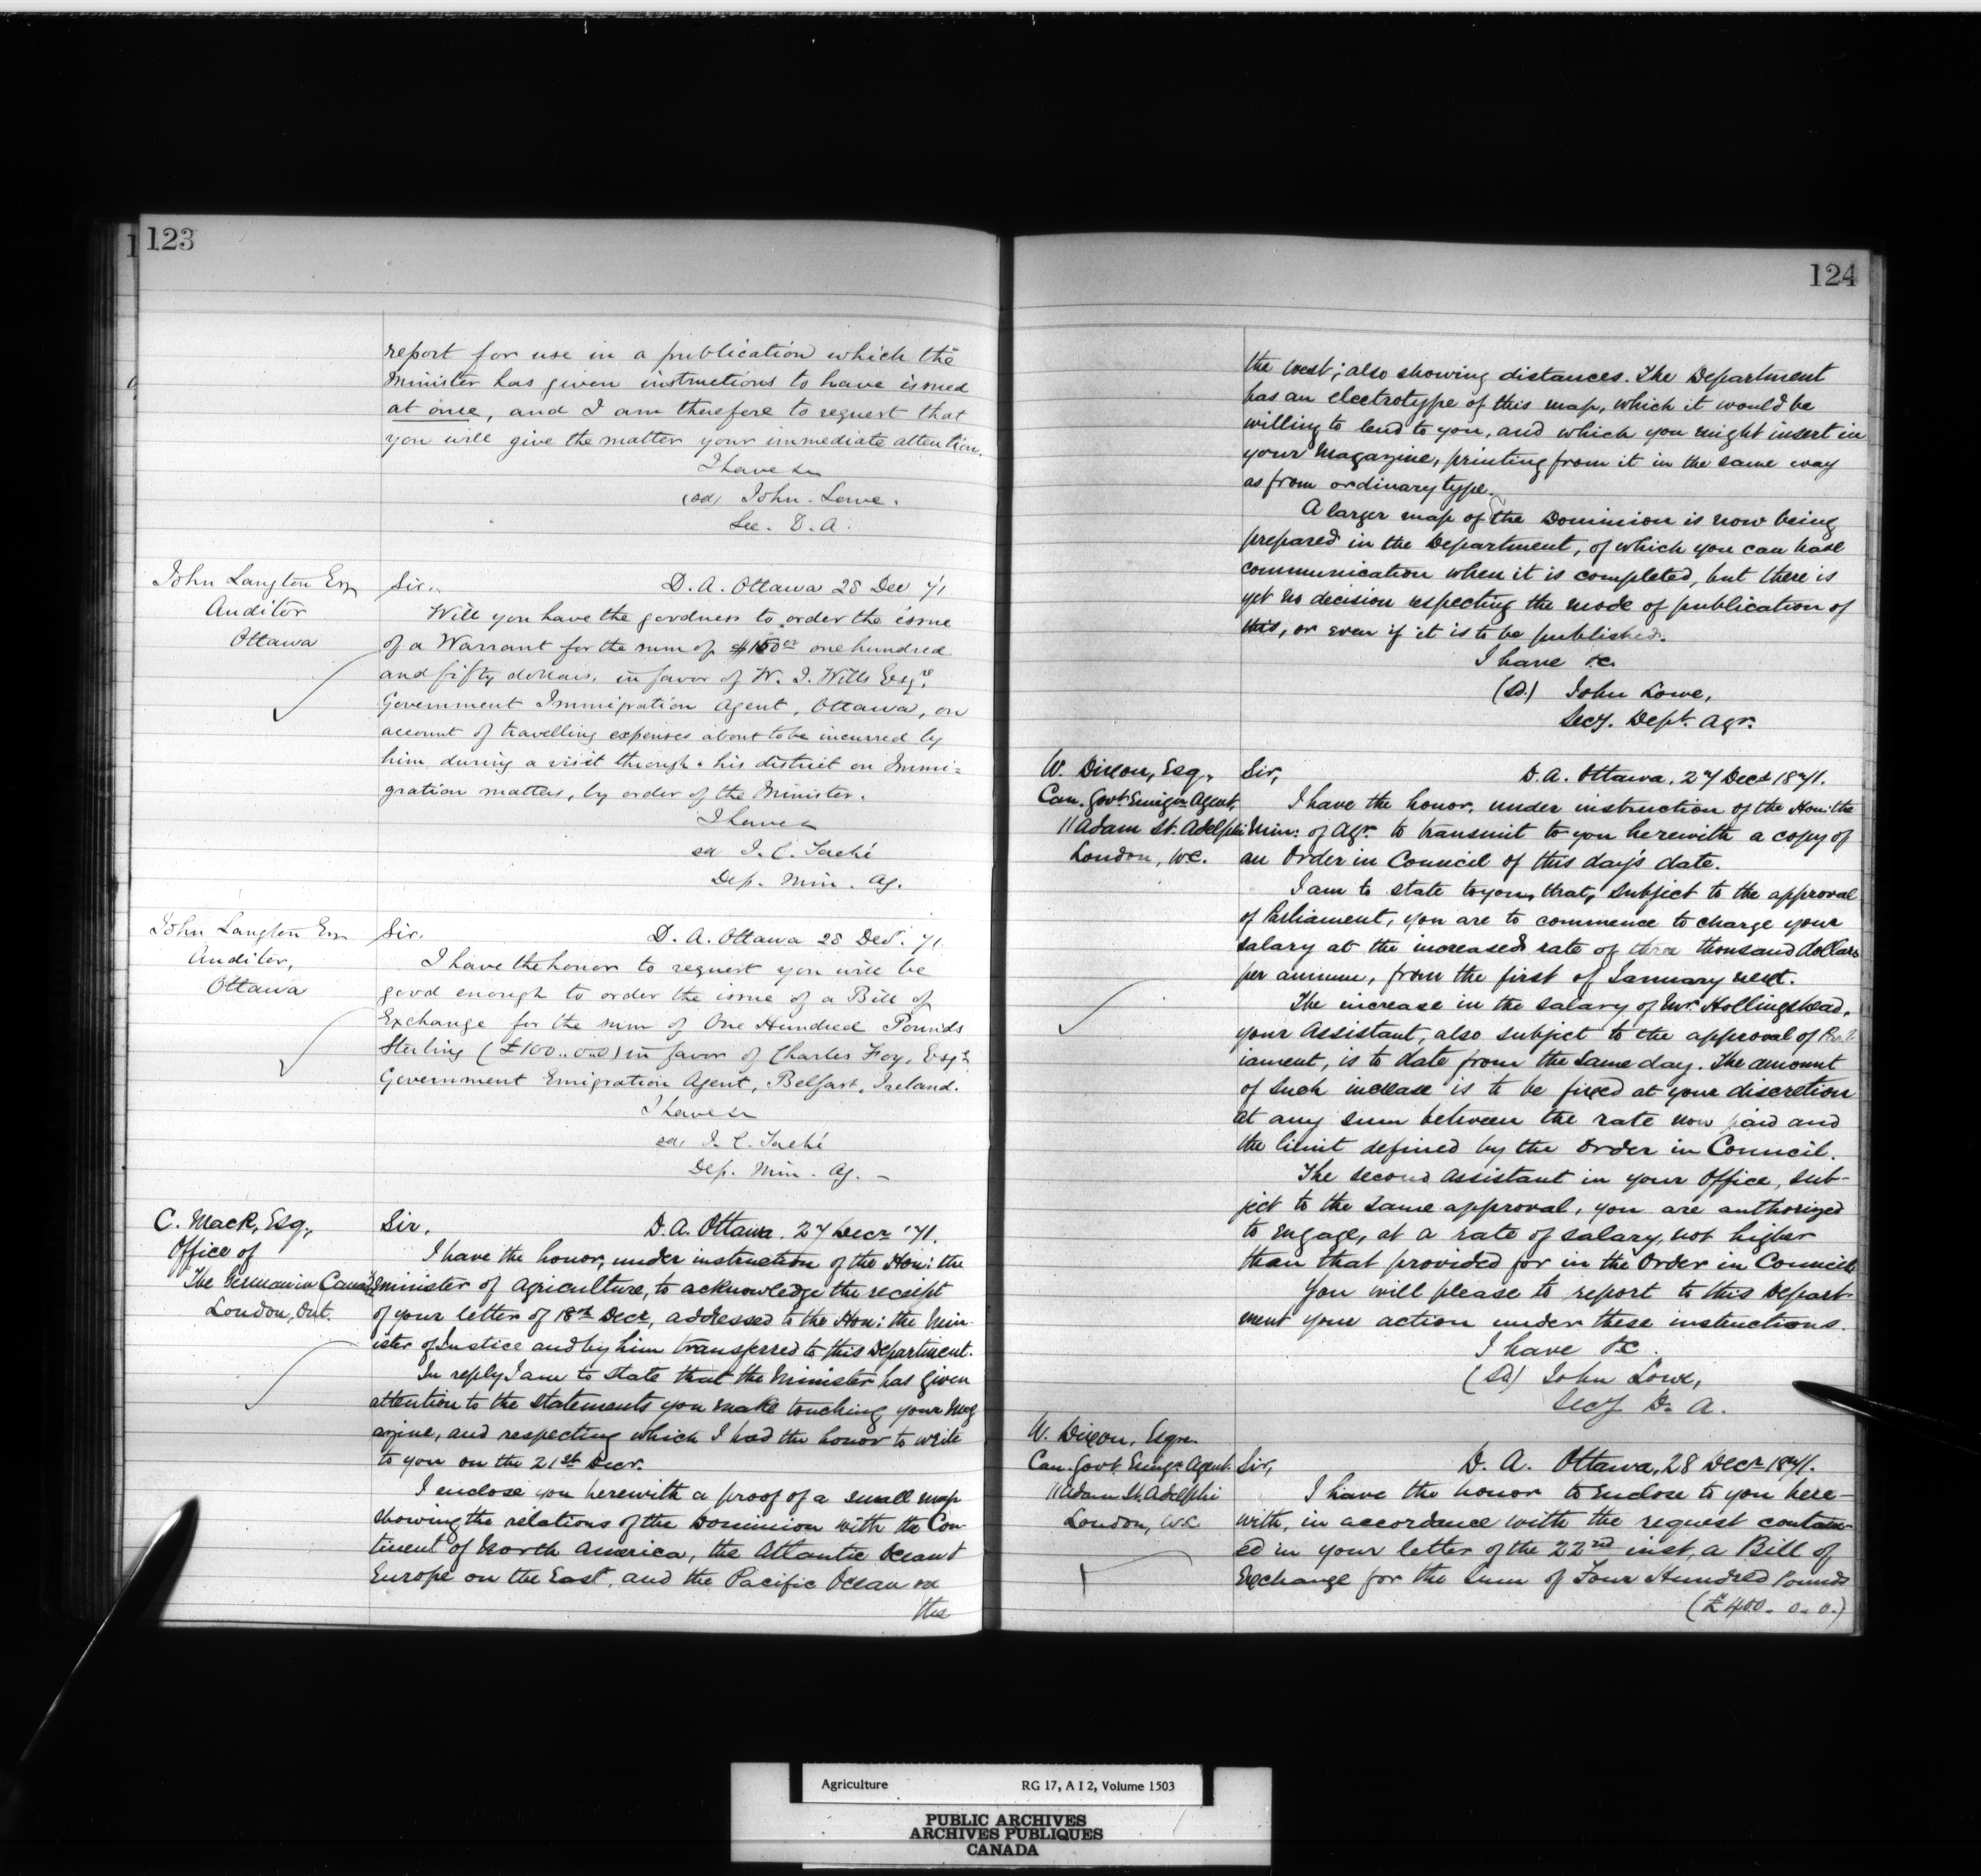 123
report for use in a publication which the
Minister has given instructions to have issued
at once, and I am therefore to request that
you will give the matter your immediate attention.
I have &c
(sd) John Lowe.
Sec. D. A.
John Langton Esq
Auditor
Ottawa
Sir. D. A. Ottawa 28 Dec 71
Will you have the goodness to order the issue
of a Warrant for the sum of $150 00 one hundred
and fifty dollars, in favor of W. J. Wills Esqre
Government Immigration Agent, Ottawa, on
account of travelling expenses about to be incurred by
him during a visit through his district on Immi=
gration matters, by order of the Minister.
I have &
sd J. C. Taché
Dep. Min. Ag.
John Langton Esq
Auditor,
Ottawa
Sir. D. A. Ottawa 28 Decr. 71
I have the honor to request you will be
good enough to order the issue of a Bill of
Exchange for the sum of One Hundred Pounds
Sterling (£100..0.0) in favor of Charles Foy, Esqr
Government Emigration Agent, Belfast, Ireland.
I have &c
sd, J. C. Taché
Dep. Min. Ag. –
C. Mack, Esq.,
Office of
The Canada
London, Ont.
Sir, D. A. Ottawa. 27 Decr '71.
I have the honor, under instruction of the Hon: the
Minister of Agriculture, to acknowledge the receipt
of your letter of 18th Decr, addressed to the Hon: the Min-
ister of Justice and by him transferred to this Department.
In reply I am to state that the Minister has given
attention to the statements you make touching your Mag
azine, and respecting which I had the honor to write
to you on the 21st Decr.
I enclose you herewith a proof of a small map
showing the relations of the Dominion with the Con-
tinent of North America, the Atlantic Ocean &
Europe on the East, and the Pacific Ocean on
the
124
the west; also showing distances. The Department
has an electrotype of this map, which it would be
willing to lend to you, and which you might insert in
your Magazine, printing from it in the same way
as from ordinary type.
A larger map of the Dominion is now being
prepared in the Department, of which you can have
communication when it is completed, but there is
yet no decision respecting the mode of publication of
this, or even if it is to be published.
I have &c.
(Sd.) John Lowe,
Secy. Dept. Agr.
W. Dixon, Esq.,
Can. Govt Emigr Agent,
11 Adam St. Adelphi
London, W.C.
Sir, D. A. Ottawa. 27 Decr 1871.
I have the honor, under instruction of the Hon: the
Min: of Agr. to transmit to you herewith a copy of
an Order in Council of this day's date.
I am to state to you, that, subject to the approval
of Parliament, you are to commence to charge your
salary at the increased rate of three thousand dollars
per annum, from the first of January next.
The increase in the salary of Mr. Hollingshead,
your Assistant, also subject to the approval of Parl-
iament, is to date from the same day. The amount
of such increase is to be fixed at your discretion
at any sum between the rate now paid and
the limit defined by the Order in Council.
The second assistant in your Office, sub-
ject to the same approval, you are authorized
to engage, at a rate of salary, not higher
than that provided for in the Order in Council
You will please to report to this Depart-
ment your action under these instructions.
I have &c.
(Sd) John Lowe,
Secy D. A.
W. Dixon, Esqre.
Can. Govt. Emigr. Agent.
11 Adam St. Adelphi
London, W.C.
Sir, D. A. Ottawa, 28 Decr 1871.
I have the honor to enclose to you here-
with, in accordance with the request contain-
ed in your letter of the 22nd inst, a Bill of
Exchange for the sum of Four Hundred Pounds
(£400. 0. 0.)
Agriculture RG 17, A I 2, Volume 1503
PUBLIC ARCHIVES
ARCHIVES PUBLIQUES
CANADA